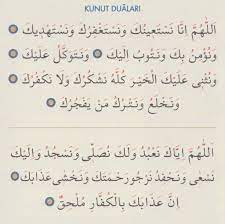 KUNUT DUÂLARI
اَللّٰهُمَّ اِنَّا نَسْتَعِينُكَ وَنَسْتَغْفِرُكَ وَنَسْتَهْدِيكَ
وَنُؤْمِنُ بِكَ وَنَتُوبُ اِلَيْكَ وَنَتَوَكَّلُ عَلَيْكَ
وَنُثْنِى عَلَيْكَ الْخَيْرَ كُلَّهُ نَشْكُرُكَ وَلَا نَكْفُرُكَ
وَنَخْلَعُ وَنَتْرُكُ مَنْ يَفْجُرُكَ
اَللّٰهُمَّ اِيَّاكَ نَعْبُدُ وَلَكَ نُصَلِّى وَنَسْجُدُ وَاِلَيْكَ
نَسْعٰى وَنَحْفِدُ نَرْجُو رَحْمَتَكَ وَنَخْشٰى عَذَابَكَ
اِنَّ عَذَابَكَ بِالْكُفَّارِ مُلْحِقٌ